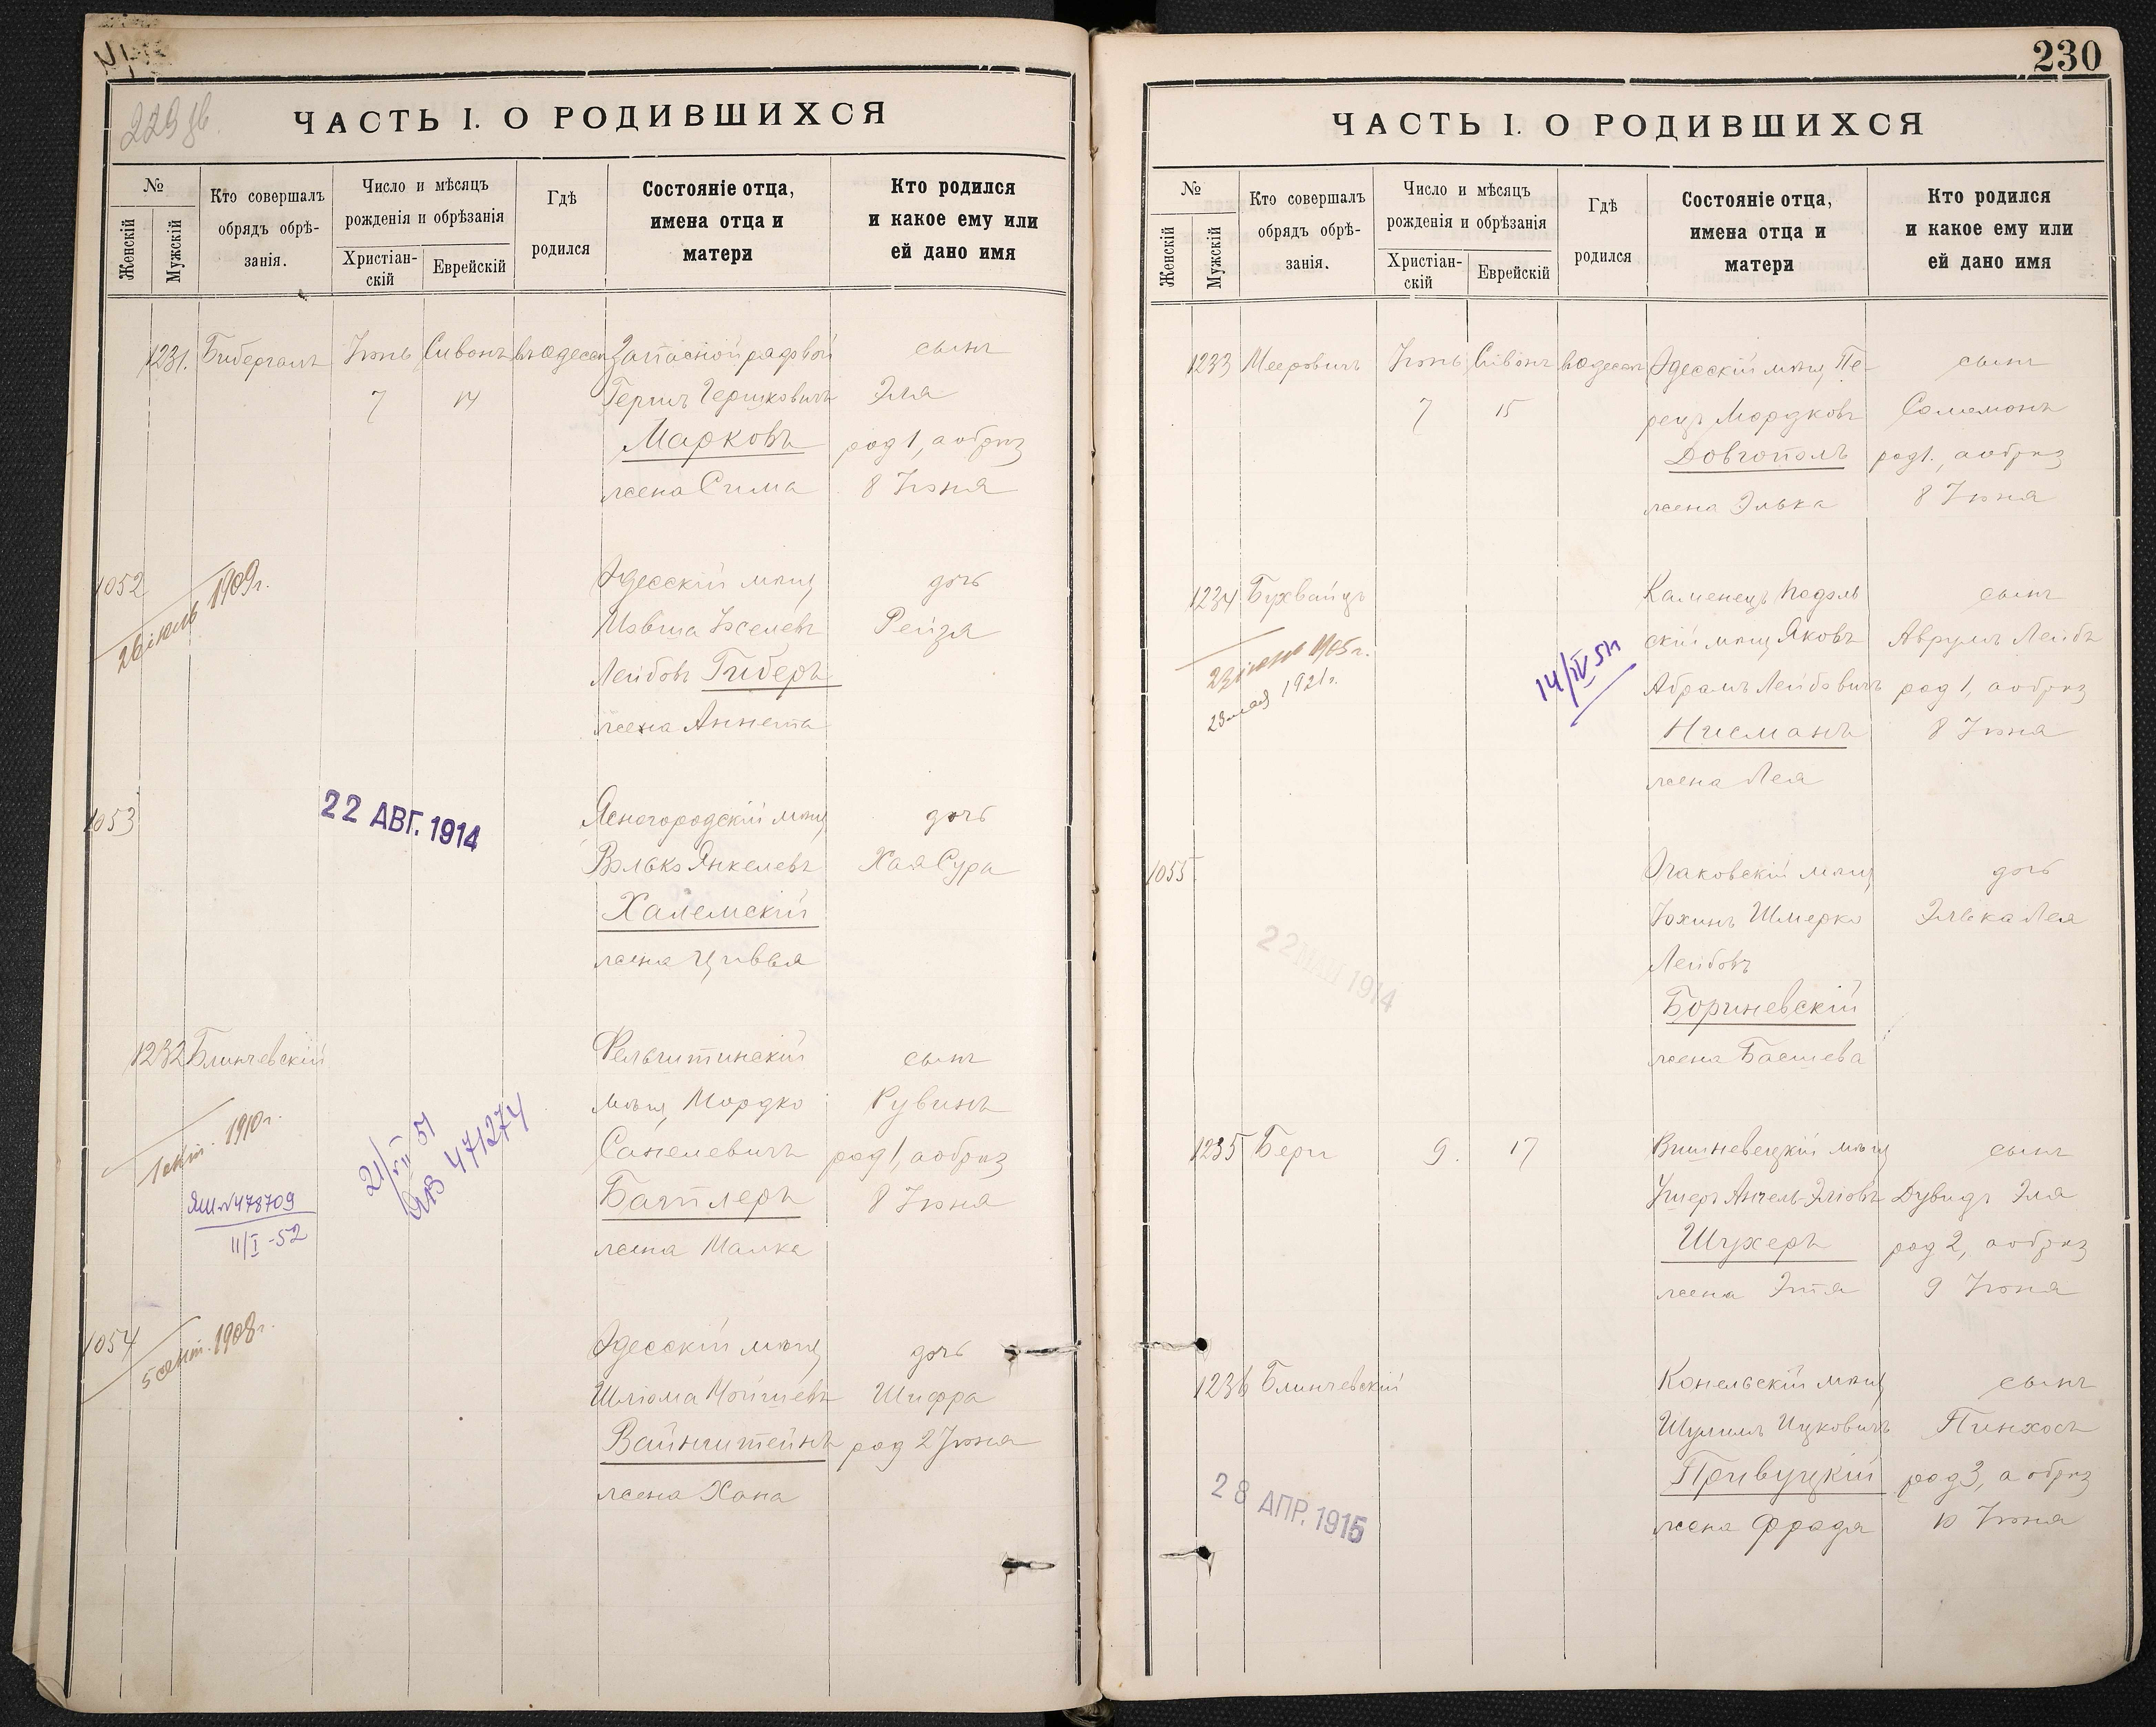 229 об.
ЧАСТЬ I. О РОДИВШИХСЯ
№
Женскій
Мужскій
Кто совершалъ
обрядъ обрѣ-
занія.
Число и мѣсяцъ
рожденія и обрѣзанія
Христіан-
скій
Еврейскій
Гдѣ
родился
Состояніе отца,
имена отца и
матери
Кто родился
и какое ему или
ей дано имя
1231. Бибергалъ Іюнь Сивонъ въ Одессѣ Запасной рядовой сынъ
7 14 Гершъ Гершковичъ Эля
Марковъ род 1, а обрѣз
жена Сима 8 Іюня
1052 Одесскій мѣщ дочь
26 іюль 1909 г.
Іовша Іоселевъ Рейзя
Лейбовъ Гиберъ
жена Аннета
1053 22 АВГ. 1914 Ясногородскій мѣщ дочь
Волько Янкелевъ Хая Сура
Халемскій
жена Цивья
1232 Блинчевскій Фельштинскій сынъ
мѣщ Мордко Рувинъ
1 сент. 1910 г.
21/VII 51
ЯВ 471274
Санелевичъ род 1, а обрѣз
ЯШ №478709
11/I-52
Батлеръ 8 Іюня
жена Малка
1054 Одесскій мѣщ дочь
5 сент. 1908 г.
Шліома Мойшевъ Шифра
Вайнштейнъ род 2 Іюня
жена Хана
230
ЧАСТЬ I. О РОДИВШИХСЯ
№
Женскій
Мужскій
Кто совершалъ
обрядъ обрѣ-
занія.
Число и мѣсяцъ
рожденія и обрѣзанія
Христіан-
скій
Еврейскій
Гдѣ
родился
Состояніе отца,
имена отца и
матери
Кто родился
и какое ему или
ей дано имя
1233 Мееровичъ Іюнь Сивонъ въ Одессѣ Одесскій мѣщ Пе-
сынъ
7 15 рецъ Мордковъ Соломонъ
Довгополъ род 1., а обрѣз
жена Элька 8 Іюня
1234 Бухвайцъ Каменецъ Подоль
сынъ
скій мѣщ Яковъ Аврумъ Лейбъ
1905 г.
23 мая 1921 г.
14/IV 51
Абрамъ Лейбовичъ род 1, а обрѣз
Нисманъ 8 Іюня
жена Лея
1055 Очаковскій мѣщ дочь
Іохинъ Шмерко Элька Лея
22 1914
Лейбовъ
Бориневскій
жена Басшева
1235 Бергъ 9. 17 Вишневецкій мѣщ сынъ
Ушеръ Анчель-Эліовъ Дувидъ Эля
Шухеръ род 2, а обрѣз
жена Этя 9 Іюня
1236 Блинчевскій Конельскій мѣщ сынъ
Шулимъ Ицковичъ Пинхосъ
28 АПР. 1915
Привуцкій род 3, а обрѣз
жена Фрадя 10 Іюня